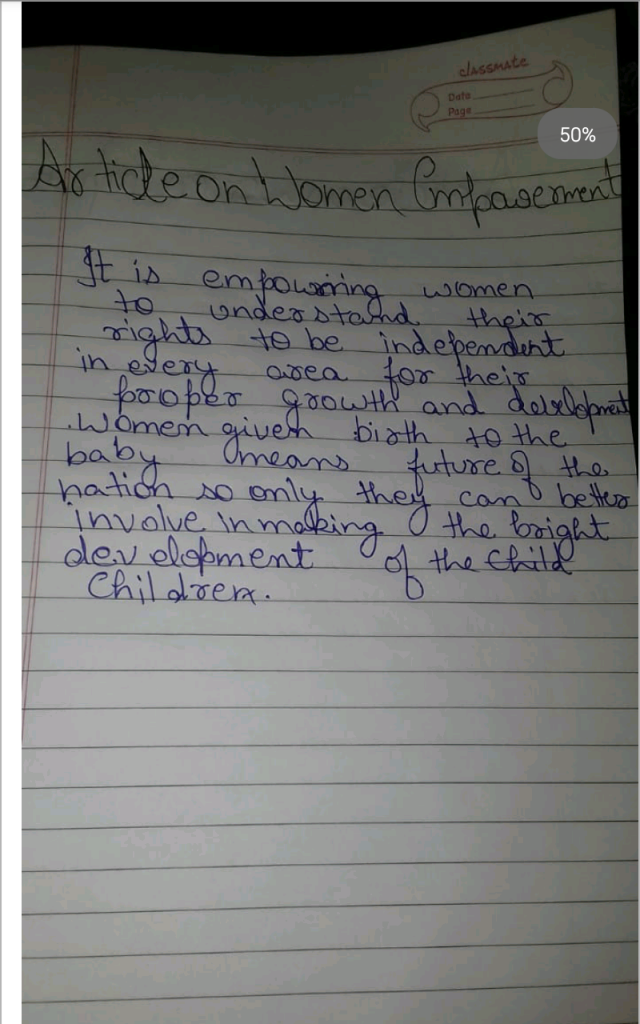 classmate
Date
Page
50%
Article on Women Empowerment
It is empowring women
to understand their
rights to be independent
in every area for their
proper growth and development
. Women given birth to the
baby means future of the
nation so only they can better
involve in making the bright
development of the child
Children.